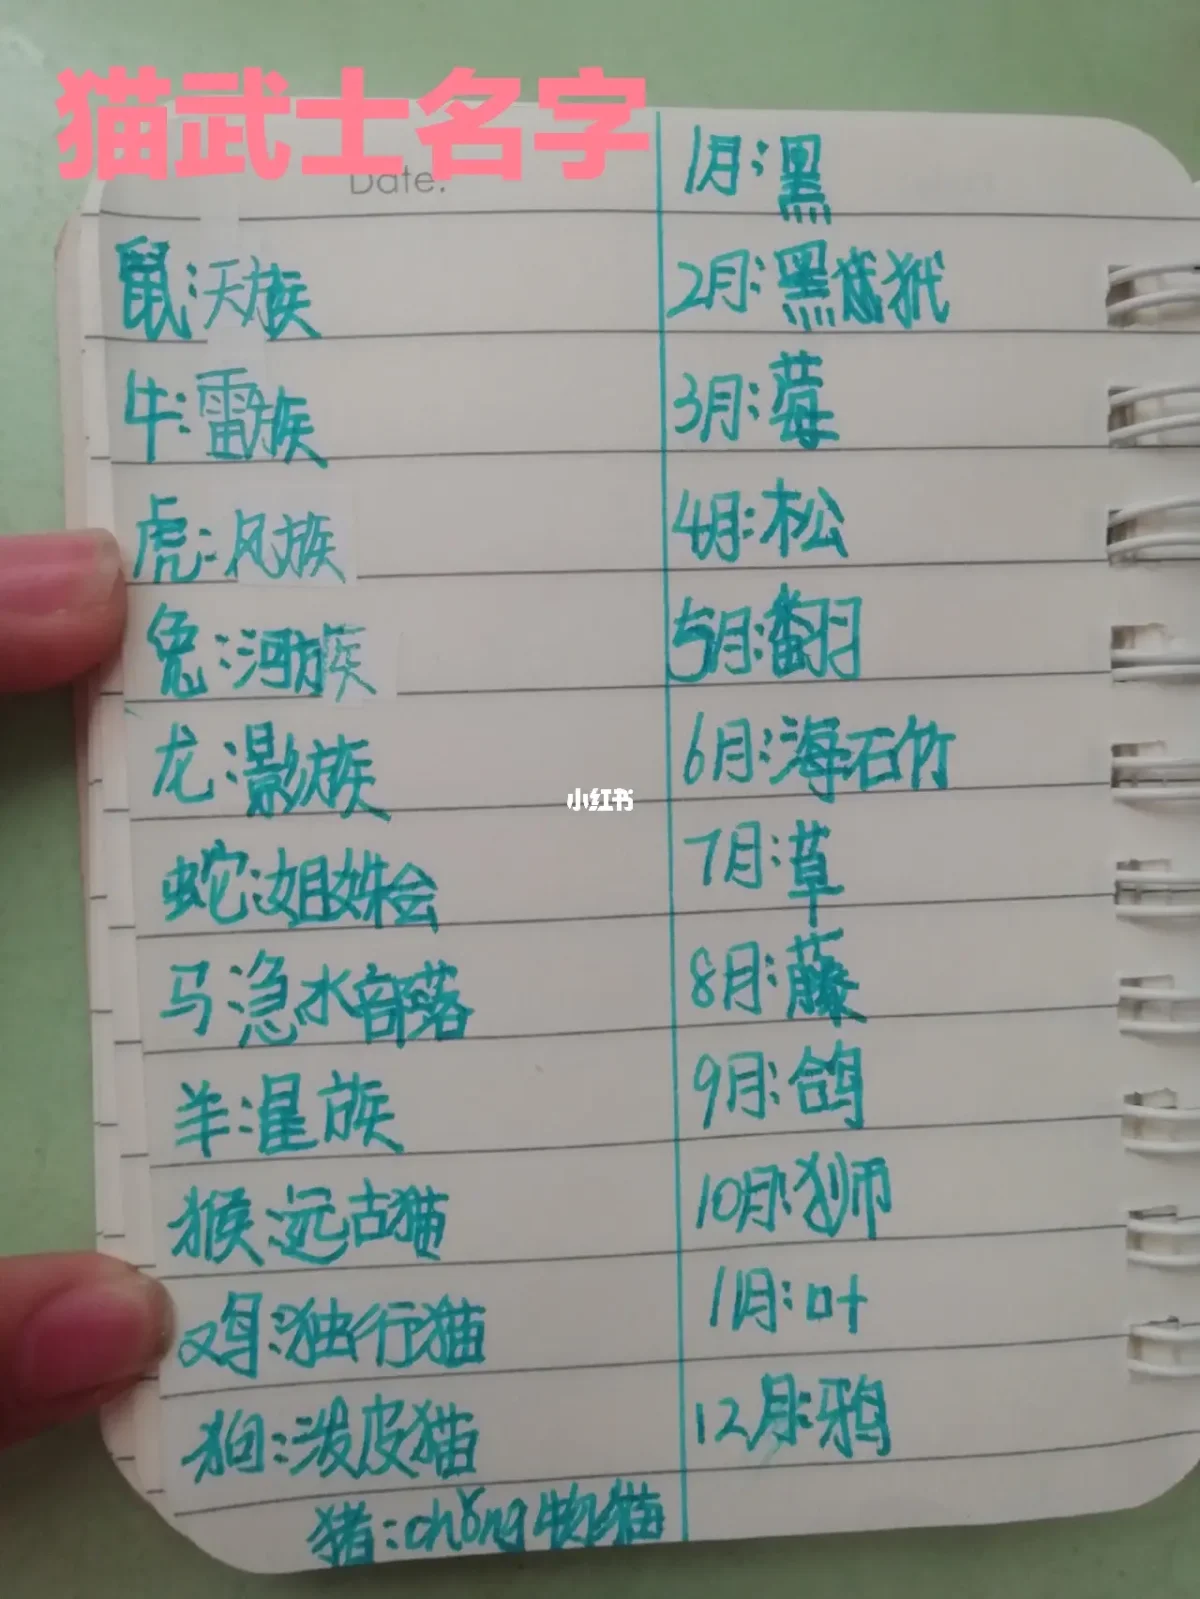 猫武士名字
Date:
鼠:天族
牛:雷族
虎:风族
兔:河族
龙:影族
蛇:姐妹会
马:急水部落
羊:星族
猴:远古猫
鸡:独行猫
狗:泼皮猫
猪:chǒng物猫
1月:黑
2月:黑
3月:莓
4月:松
5月:翻
6月:海石竹
7月:草
8月:藤
9月:鸽
10月:狮
11月:叶
12月:鸦
小红书